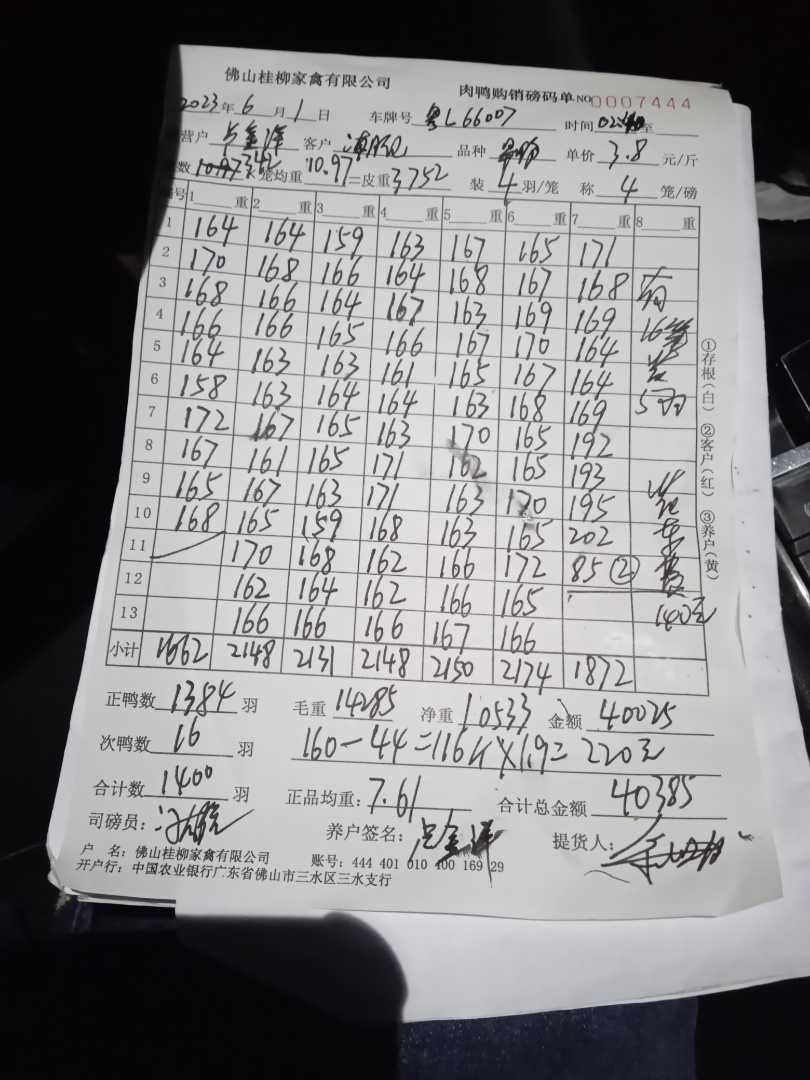 佛山桂柳家禽有限公司
肉鸭购销磅码单 NO 0007444
2023年 6 月 1 日 车牌号 粤L66007 时间 至
营户 客户 品种 单价 3.8 元/斤
数 342 笼均重 10.97 =皮重 3752 装 4 羽/笼 称 4 笼/磅
编号 1 重 2 重 3 重 4 重 5 重 6 重 7 重 8 重
1 164 164 159 163 167 165 171
2 170 168 166 164 168 167 168 有
3 168 166 164 167 163 169 169 16笼
4 166 166 165 166 167 170 164 装
5 164 163 163 161 165 167 164 5羽
6 158 163 164 164 163 168 169
7 172 167 165 163 170 165 192
8 167 161 165 171 162 165 193
9 165 167 163 171 163 170 195 装
10 168 165 159 168 163 165 202 车
11 170 168 162 166 172 85 ② 费
12 162 164 162 166 165 140元
13 166 166 166 167 166
小计 1662 2148 2131 2148 2150 2174 1872
①存根(白) ②客户(红) ③养户(黄)
正鸭数 1384 羽 毛重 14285 净重 10533 金额 40025
次鸭数 16 羽 160-44=116斤×1.9=220元
合计数 1400 羽 正品均重: 7.61 合计总金额 40385
司磅员: 养户签名: 提货人:
户 名: 佛山桂柳家禽有限公司 账号: 444 401 010 400 169 29
开户行: 中国农业银行广东省佛山市三水区三水支行